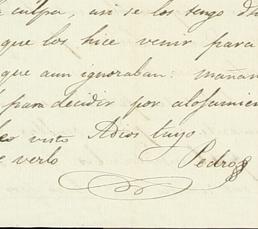 culpa, asi se los tengo
que los hice venir para
que aun ignoraban: mañan
para decidir por alojamien
visto Adios tuyo
verlo Pedro